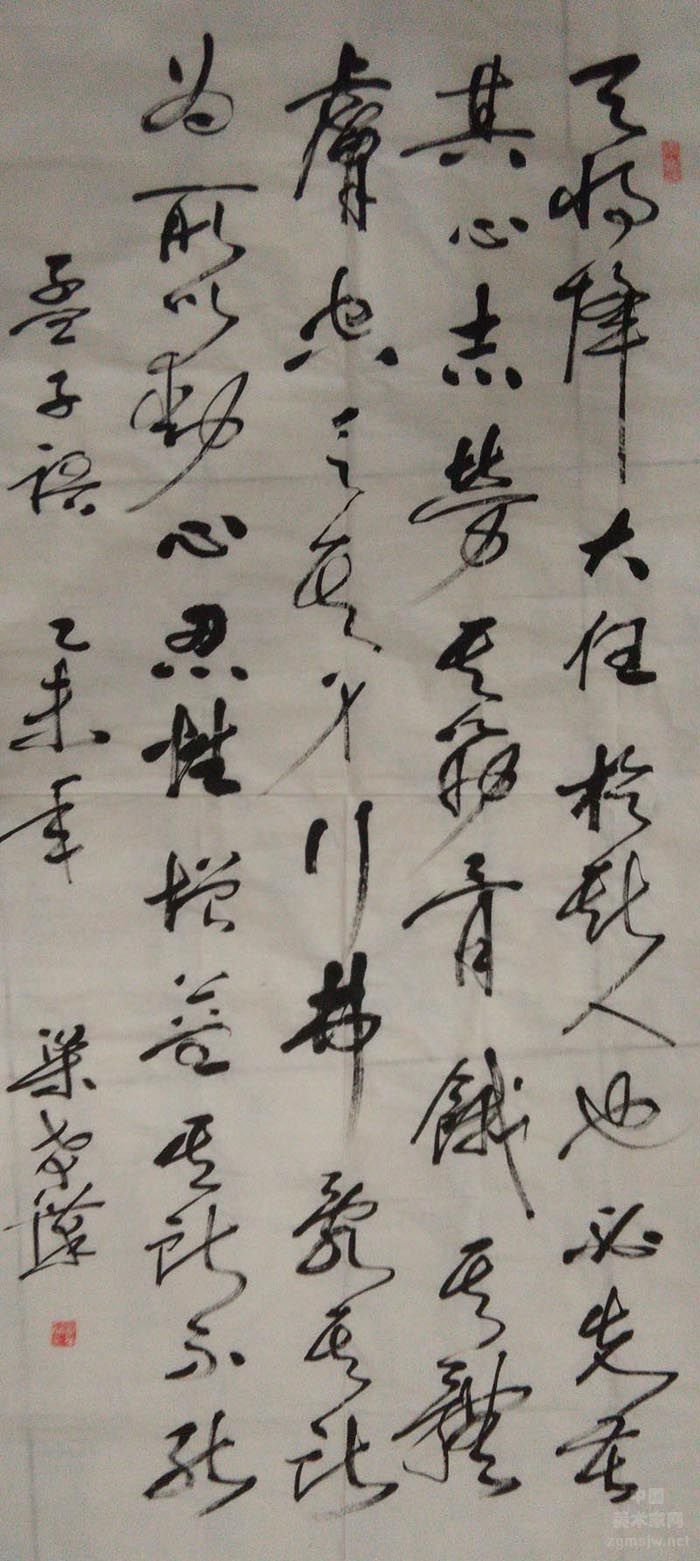 天将降大任於斯人也必先苦
其心志勞其筋骨餓其體
膚空乏其身行拂亂其所
为所以動心忍性增益其所不能
孟子语 乙未年 梁
中国
美术家网
zgmsjw.net